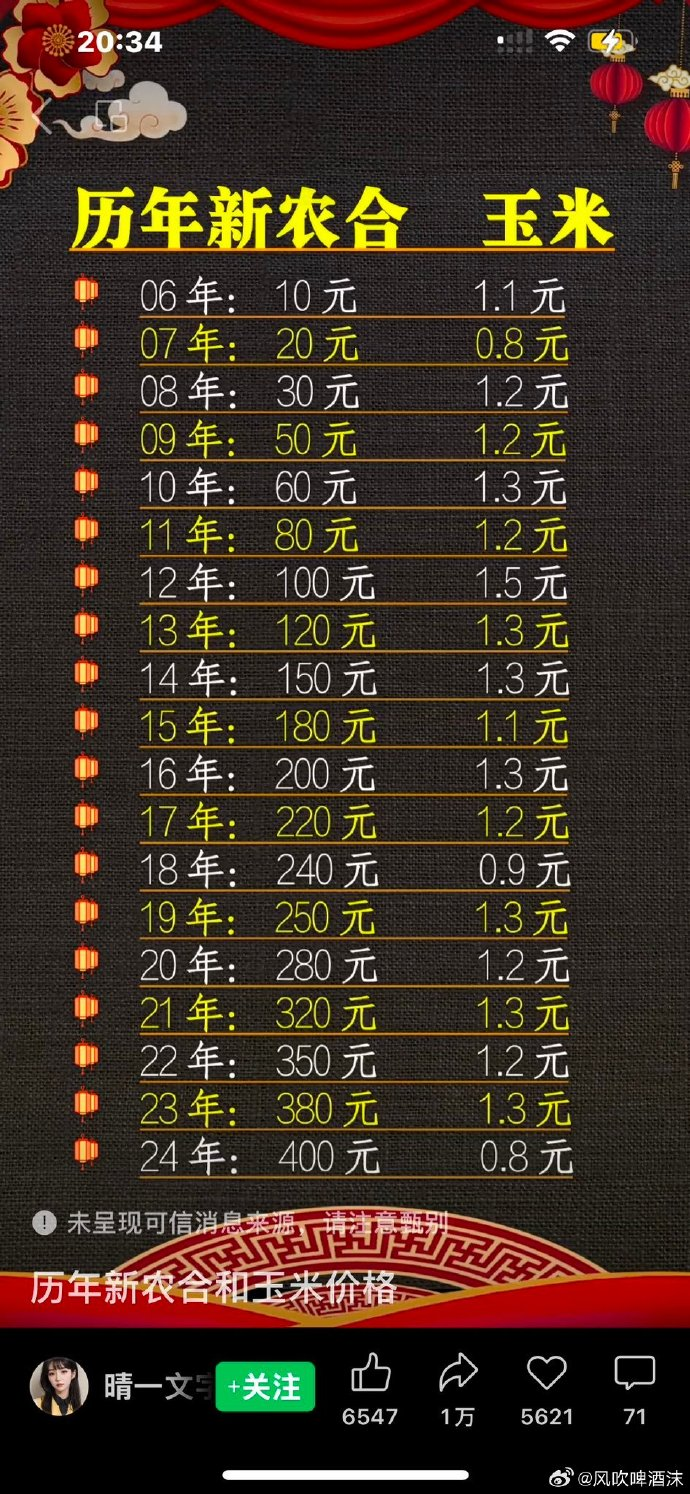 20:34
历年新农合 玉米
06年： 10元 1.1元
07年： 20元 0.8元
08年： 30元 1.2元
09年： 50元 1.2元
10年： 60元 1.3元
11年： 80元 1.2元
12年： 100元 1.5元
13年： 120元 1.3元
14年： 150元 1.3元
15年： 180元 1.1元
16年： 200元 1.3元
17年： 220元 1.2元
18年： 240元 0.9元
19年： 250元 1.3元
20年： 280元 1.2元
21年： 320元 1.3元
22年： 350元 1.2元
23年： 380元 1.3元
24年： 400元 0.8元
未呈现可信消息来源，请注意甄别
历年新农合和玉米价格
晴一文字 +关注
6547 1万 5621 71
@风吹啤酒沫